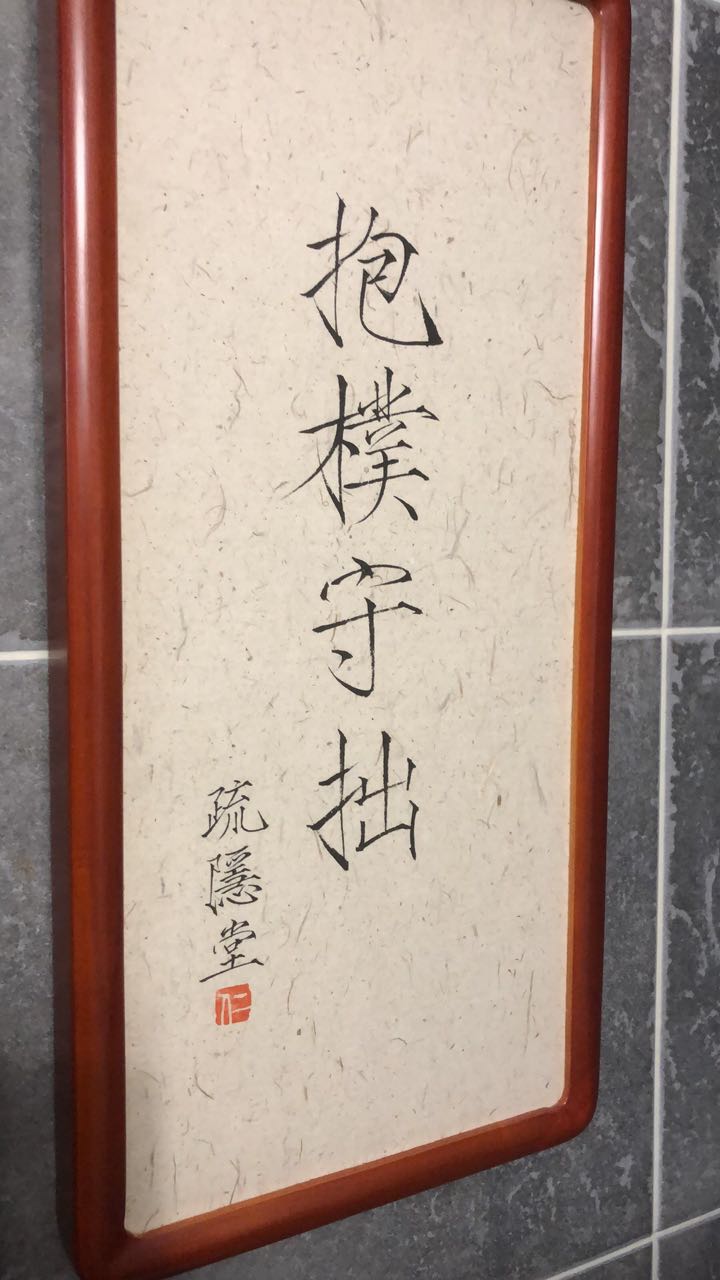 抱樸守拙
疏隱堂
仁